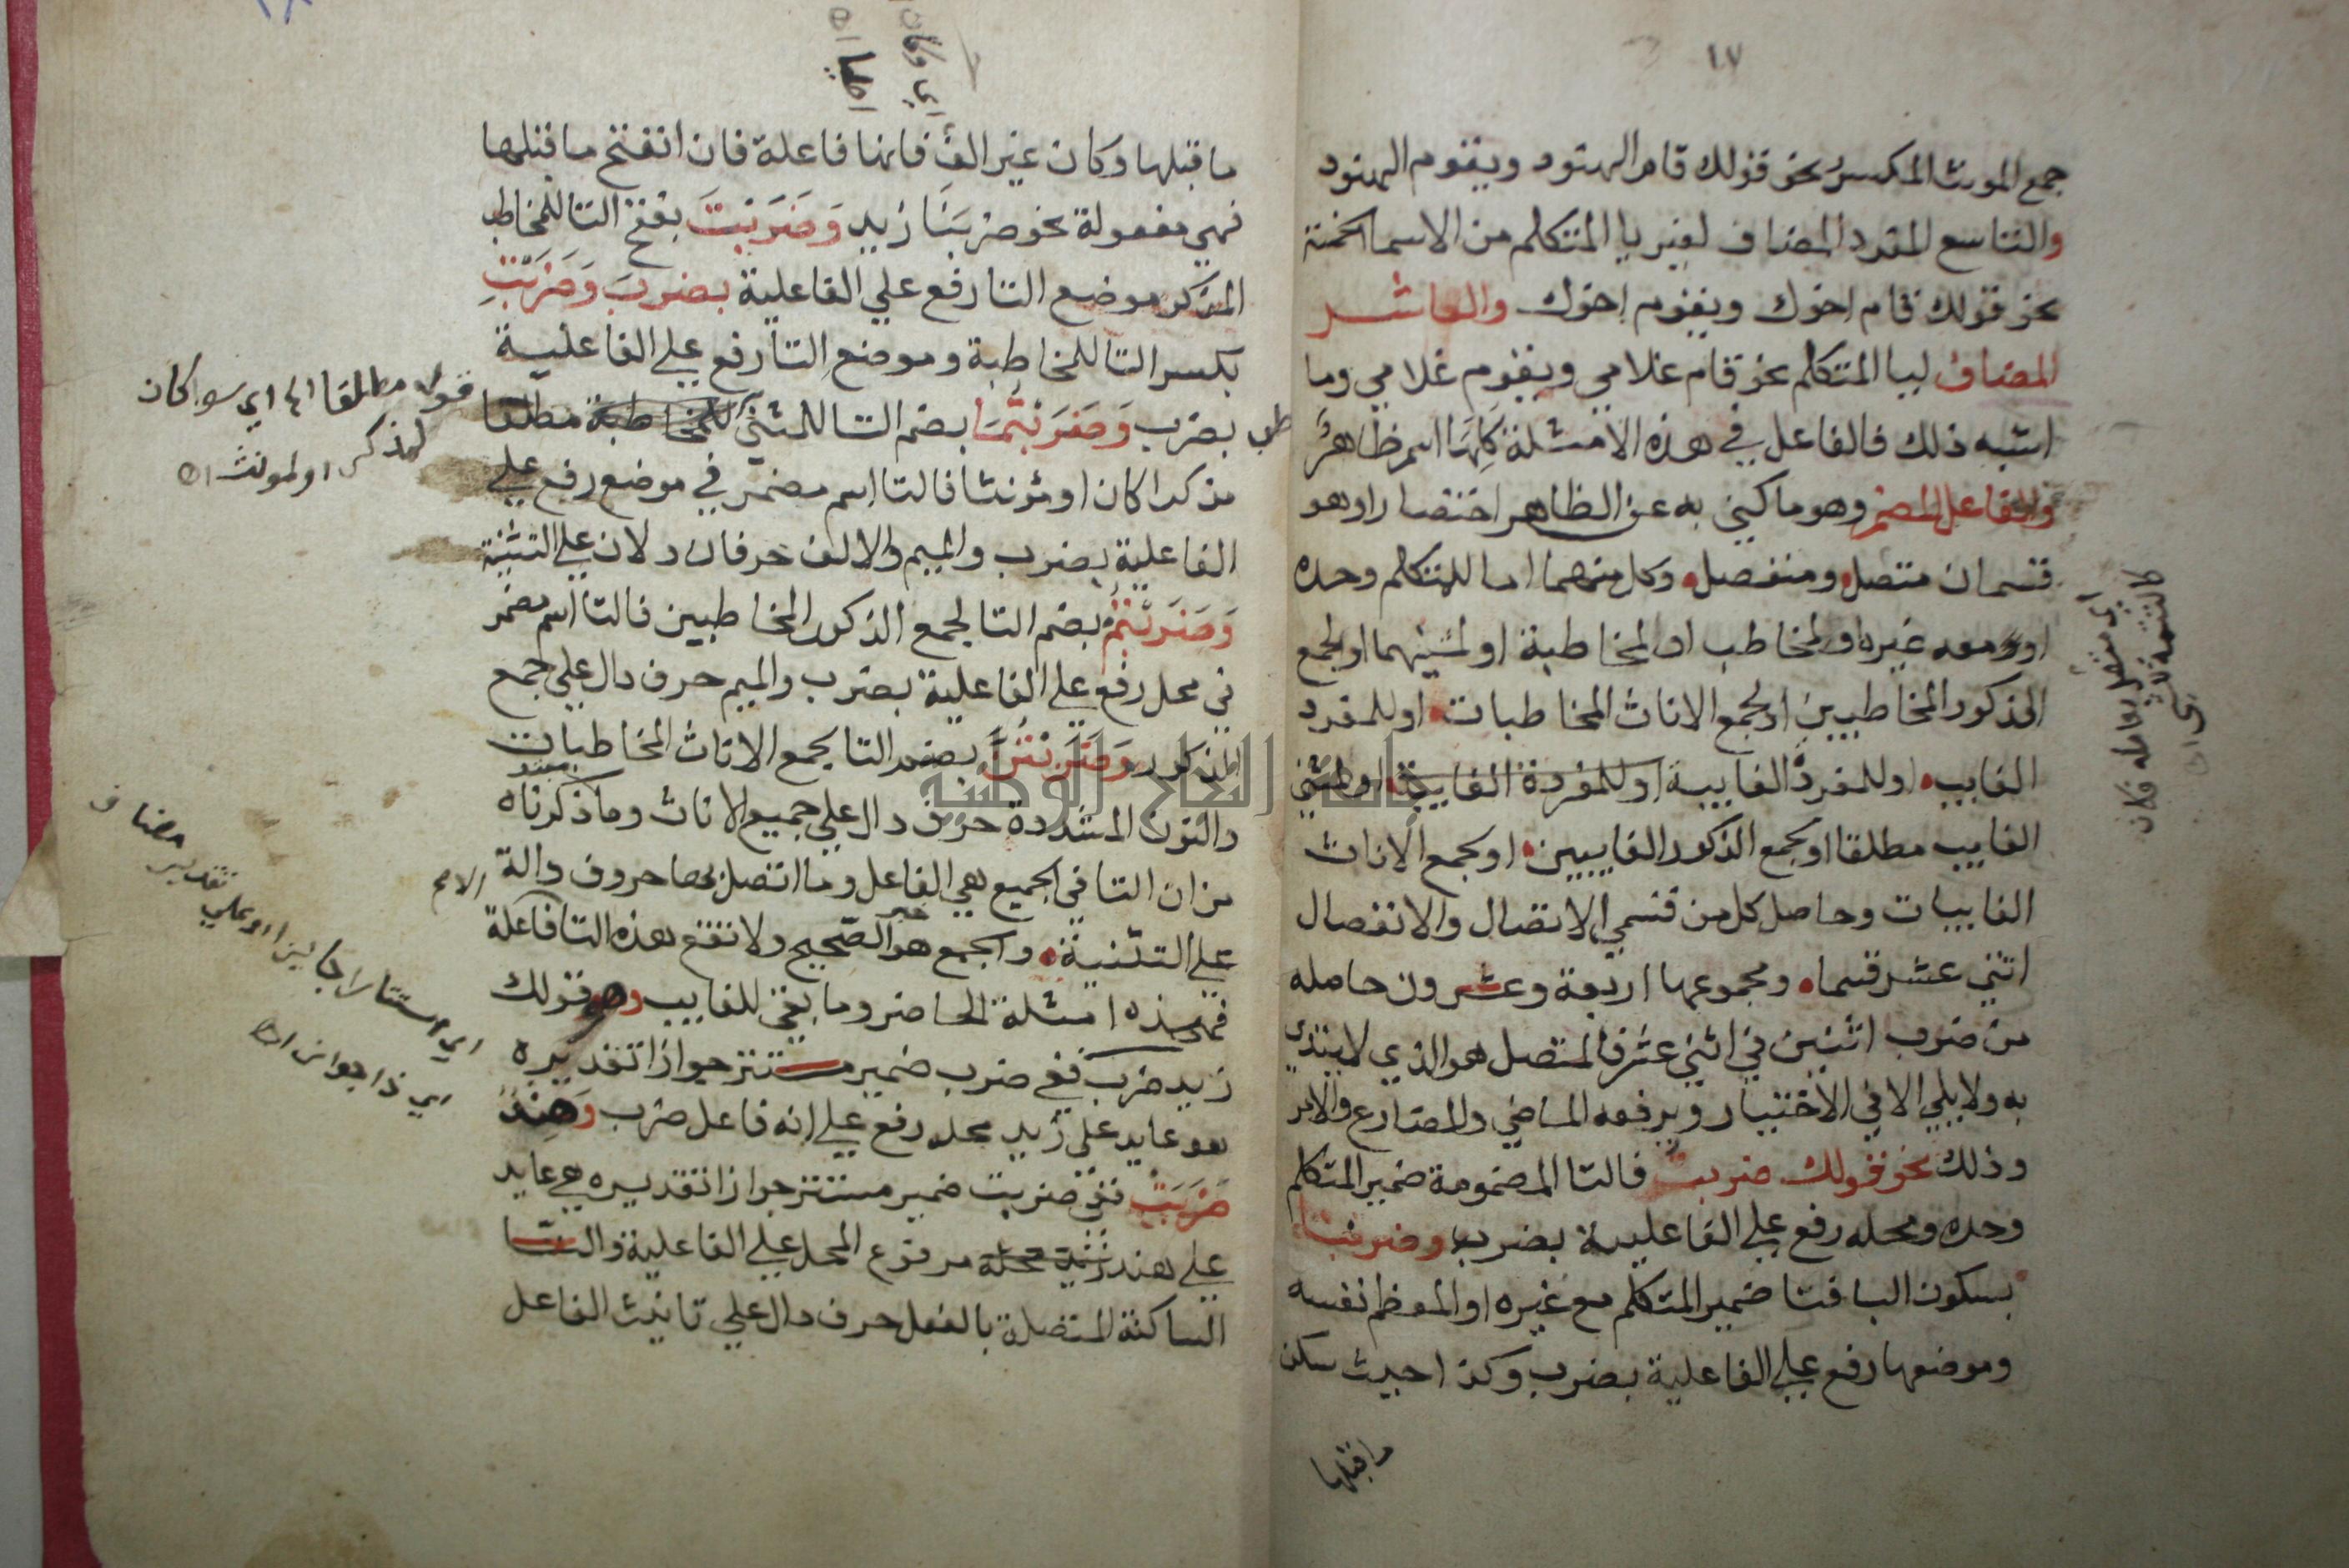 ١٧
جمع المونث المكسر نحو قولك قام الهنود ويقوم الهنود
والتاسع المفرد المضاف لغير يا المتكلم من الاسما الخمسة
نحو قولك قام اخوك ويقوم اخوك والعاشر
المضاف ليا المتكلم نحو قام غلامي ويقوم غلامي وما
اشبه ذلك فالفاعل في هذه الامثلة كلها اسم ظاهر
والفاعل المضمر وهو ما كني به عن الظاهر اختصارا وهو
قسمان متصل ومنفصل وكل منهما اما للمتكلم وحده
او ومعه غيره او لمخاطب او لمخاطبة او لمثنيهما او لجمع
الذكور المخاطبين او لجمع الاناث المخاطبات او للمفرد
الغايب او للمفردة الغايبة او للمفردة الغايبة او لمثني
الغايب مطلقا او لجمع الذكور الغايبين او لجمع الاناث
الغايبات وحاصل كل من قسمي الاتصال والانفصال
اثني عشر قسما ومجموعها اربعة وعشرون حاصله
من ضرب اثنين في اثني عشر فالمتصل هو الذي لا يبتدي
به ولا يلي الا في الاختيار ويرفعه الماضي والمضارع والامر
وذلك نحو قولك ضربت فالتا المضمومة ضمير المتكلم
وحده ومحله رفع علي الفاعلية بضرب وضربنا
بسكون البا فنا ضمير المتكلم مع غيره او المعظم نفسه
وموضعها رفع علي الفاعلية بضرب وكذا حيث سكن
ما قبلها
ما قبلها وكان غير الف فانها فاعلة فان انفتح ما قبلها
فهي مفعولة نحو ضربنا زيد وضربت بفتح التا للمخاطب
المذكر موضع التا رفع علي الفاعلية بضرب وضربت
بكسر التا للمخاطبة وموضع التا رفع علي الفاعلية
بضرب وضربتما بضم التا للمثني للمخاطبة مطلقا
مذكرا كان او مؤنثا فالتا اسم مضمر في موضع رفع علي
الفاعلية بضرب والميم والالف حرفان دلان علي التثنية
وضربتم بضم التا لجمع الذكور المخاطبين فالتا اسم مضمر
في محل رفع علي الفاعلية بضرب والميم حرف دال علي جمع
المذكور وضربتن بضم التا لجمع الاناث المخاطبات
والنون المشددة حرف دال علي جميع الاناث وما ذكرناه
من ان التا في الجميع هي الفاعل وما اتصل بها حروف دالة
علي التثنية والجمع هو الصحيح ولا تقع هذه التا فاعلة
فهذه امثلة الحاضر وما بقي للغايب وهو قولك
زيد ضرب ففي ضرب ضمير مستتر جوازا تقديره
هو عايد علي زيد محله رفع علي انه فاعل ضرب وهند
ضربت ففي ضربت ضمير مستتر جوازا تقديره هي عايد
علي هند محله مرفوع المحل علي الفاعلية والتا
الساكنة المتصلة بالفعل حرف دال علي تانيث الفاعل
قوله مطلقا الخ اي سوا كان
لمذكر او لمونث اه
اي استتارا جايزا او علي تقدير مضاف
اي ذا جواز اه
جامعة النجاح الوطنية